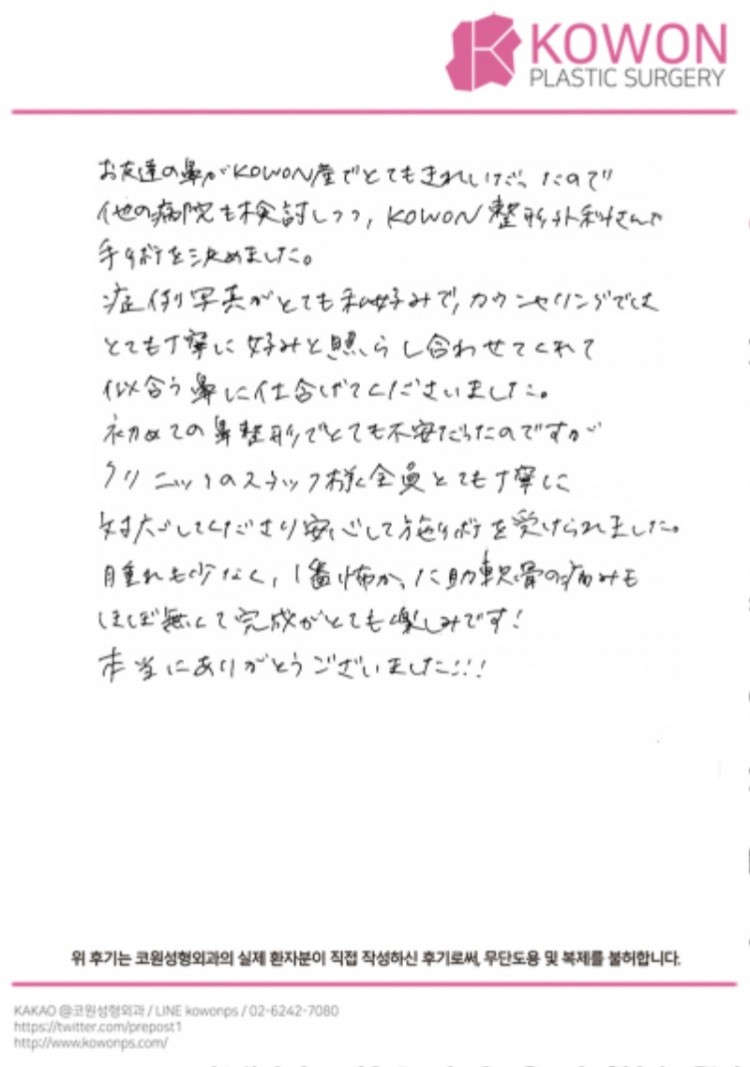 KOWON
PLASTIC SURGERY
お友達の鼻がKOWON産でとてもきれいだったので
他の病院も検討しつつ、KOWON整形外科さんで
手術を決めました。
症例写真がとても私好みで、カウンセリングでは
とても丁寧に好みと照らし合わせてくれて
似合う鼻に仕上げてくださいました。
初めての鼻整形でとても不安だったのですが
クリニックのスタッフ様全員とても丁寧に
対応してくださり安心して施術を受けられました。
腫れも少なく、1番怖かった肋軟骨の痛みも
ほぼ無くて完成がとても楽しみです!
本当にありがとうございました!!!
위 후기는 코원성형외과의 실제 환자분이 직접 작성하신 후기로써, 무단도용 및 복제를 불허합니다.
KAKAO @코원성형외과 / LINE kowonps / 02-6242-7080
https://twitter.com/prepost1
http://www.kowonps.com/